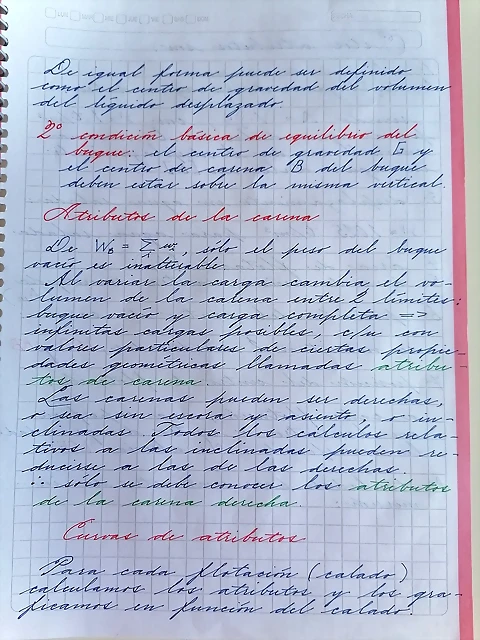 De igual forma puede ser definido
como el centro de gravedad del volumen
del líquido desplazado.
2º condición básica de equilibrio del
buque: el centro de gravedad G y
el centro de carena B del buque
deben estar sobre la misma vertical.
Atributos de la carena
De W₀ = Σ wi, sólo el peso del buque
vacío es inalterable.
Al variar la carga cambia el vo-
lumen de la carena entre 2 límites:
buque vacío y carga completa =>
infinitas cargas posibles, c/u con
valores particulares de ciertas propie-
dades geométricas llamadas atribu-
tos de carena.
Las carenas pueden ser derechas,
o sea sin escora y asiento, o in-
clinadas. Todos los cálculos rela-
tivos a las inclinadas pueden re-
ducirse a las de las derechas.
∴ sólo se debe conocer los atributos
de la carena derecha.
Curvas de atributos
Para cada flotación (calado)
calculamos los atributos y los gra-
ficamos en función del calado.